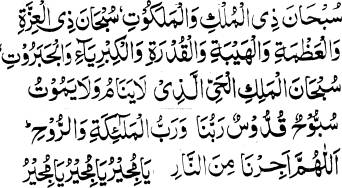 سُبْحَانَ ذِى الْمُلْكِ وَالْمَلَكُوْتِ سُبْحَانَ ذِى الْعِزَّةِ
وَالْعَظْمَةِ وَالْهَيْبَةِ وَالْقُدْرَةِ وَالْكِبْرِيَآءِ وَالْجَبَرُوْتِ
سُبْحَانَ الْمَلِكِ الْحَيِّ الَّذِىْ لَا يَنَامُ وَلَا يَمُوْتُ
سُبُّوْحٌ قُدُّوْسٌ رَبُّنَا وَرَبُّ الْمَلٰٓئِكَةِ وَالرُّوْحِ
اَللّٰهُمَّ اَجِرْنَا مِنَ النَّارِ يَا مُجِيْرُ يَا مُجِيْرُ يَا مُجِيْرُ